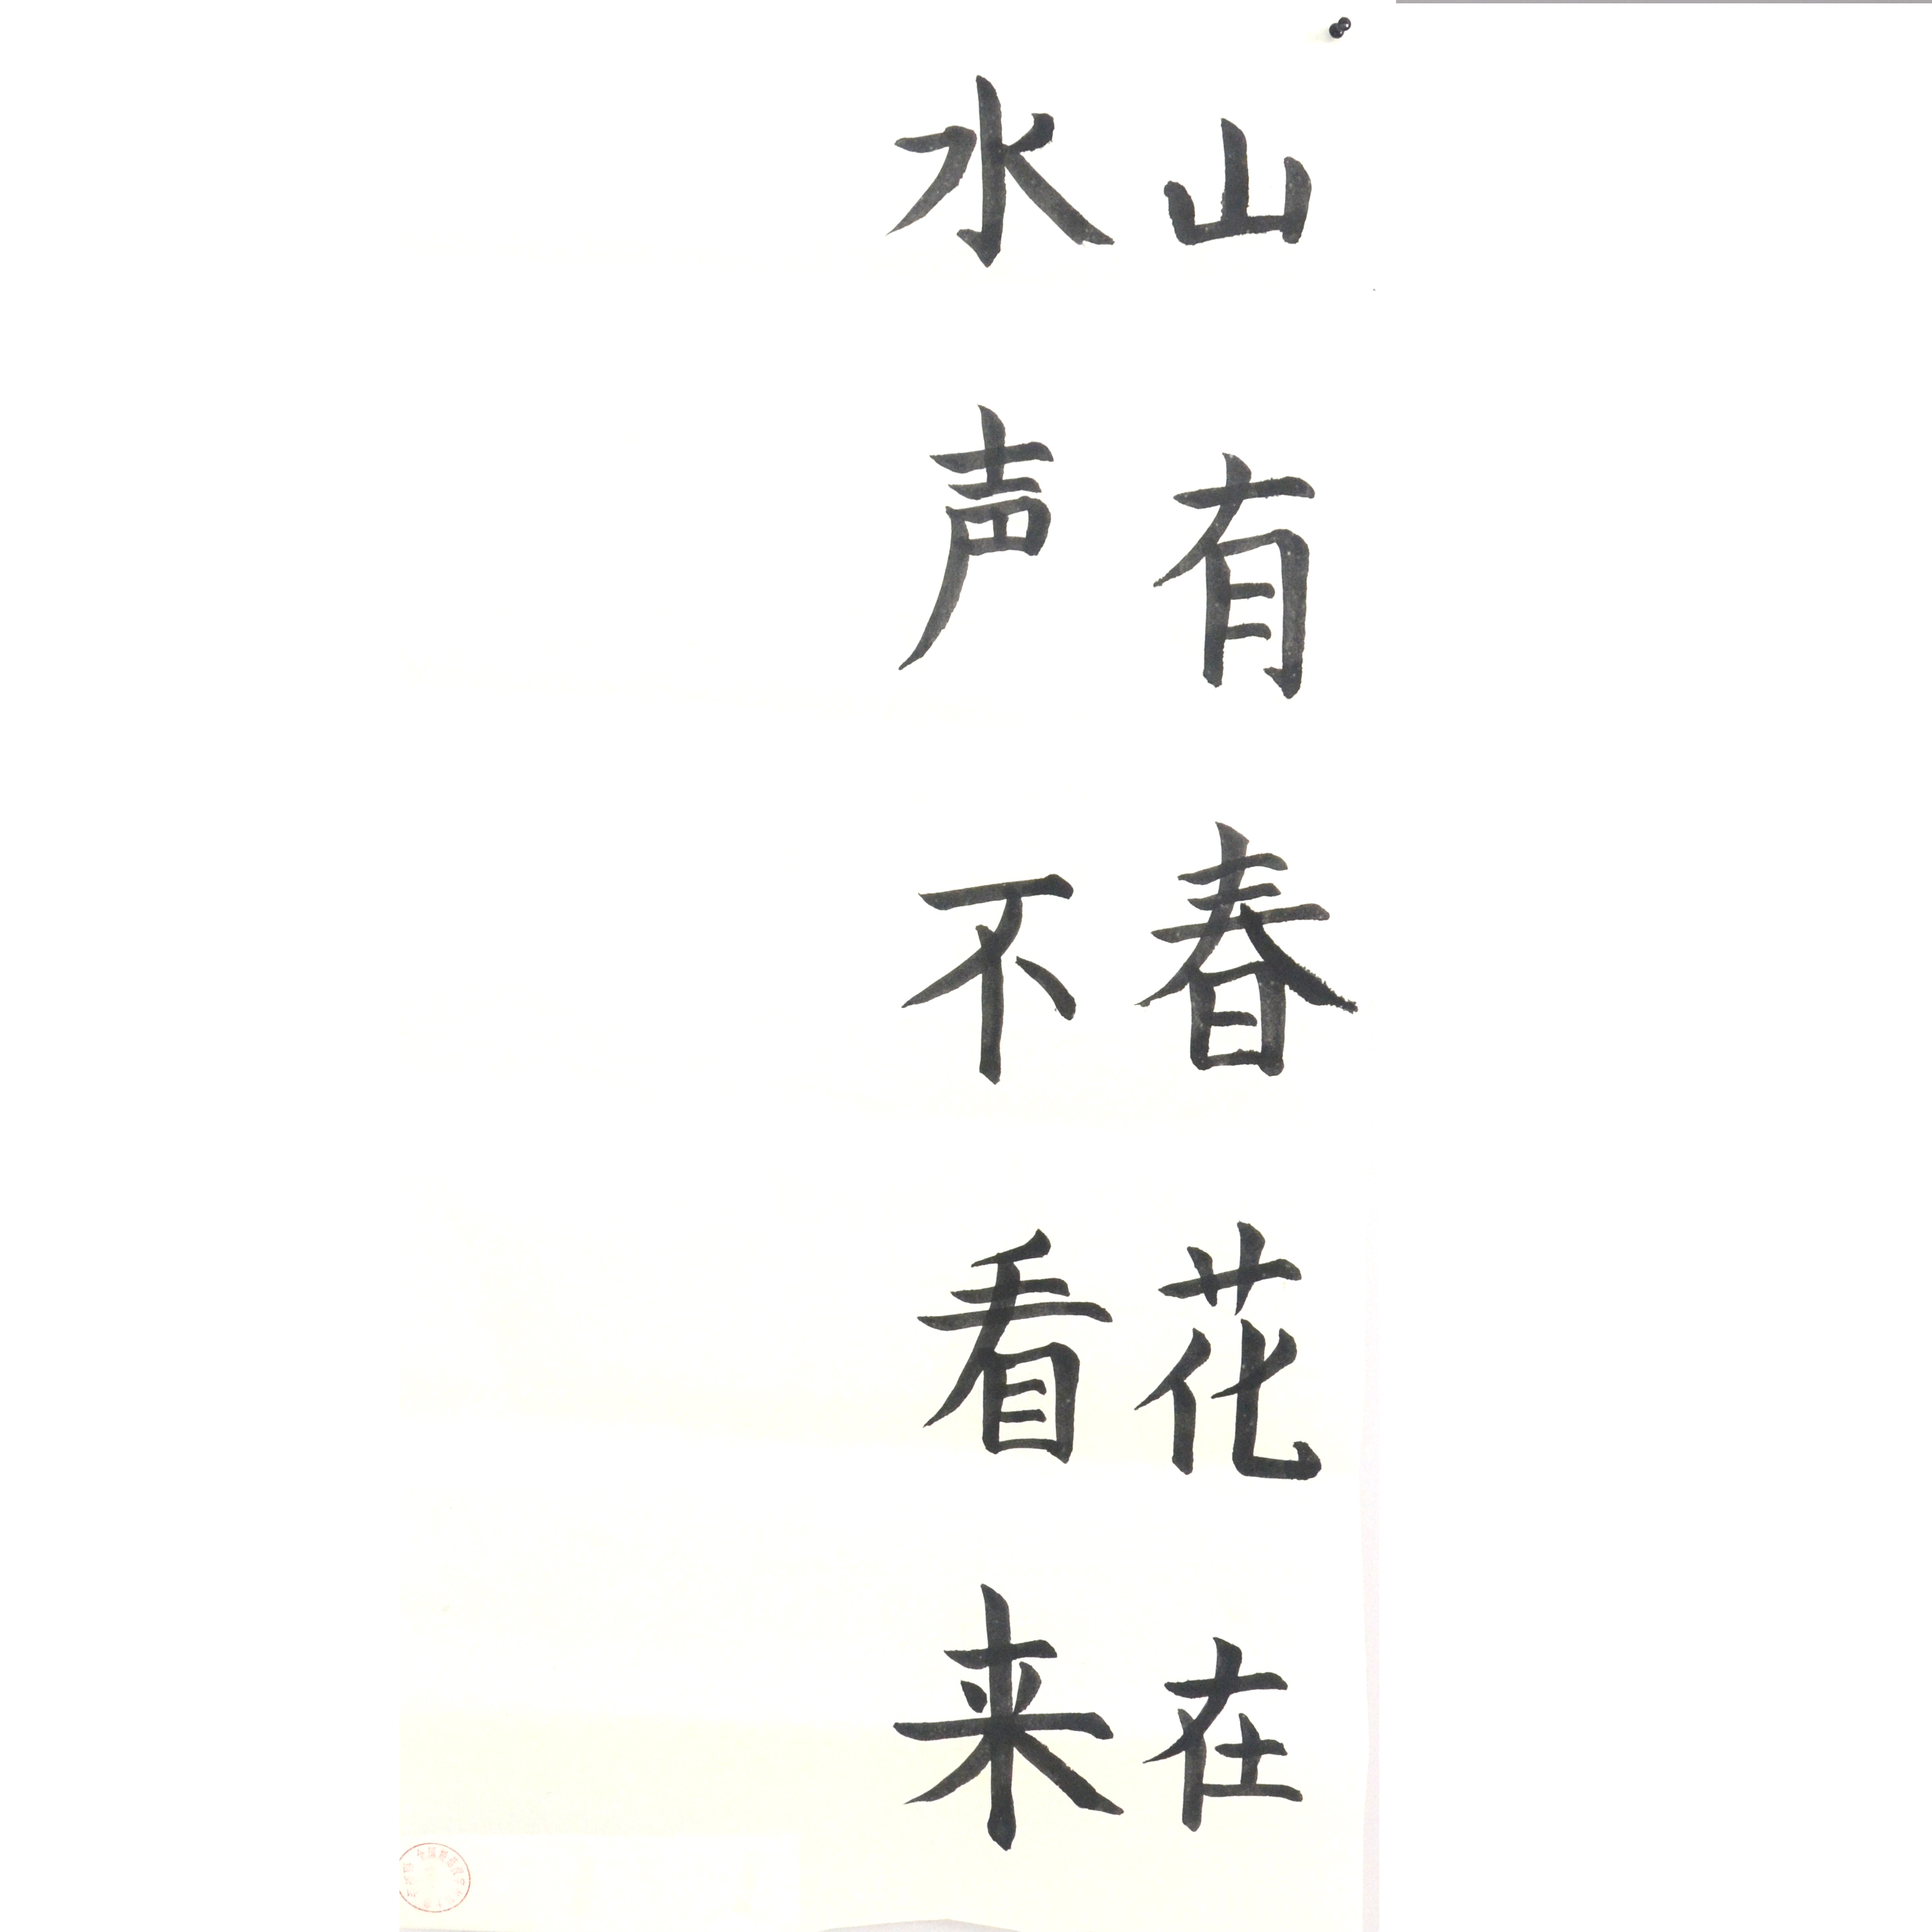 山有春花在
水声不看来